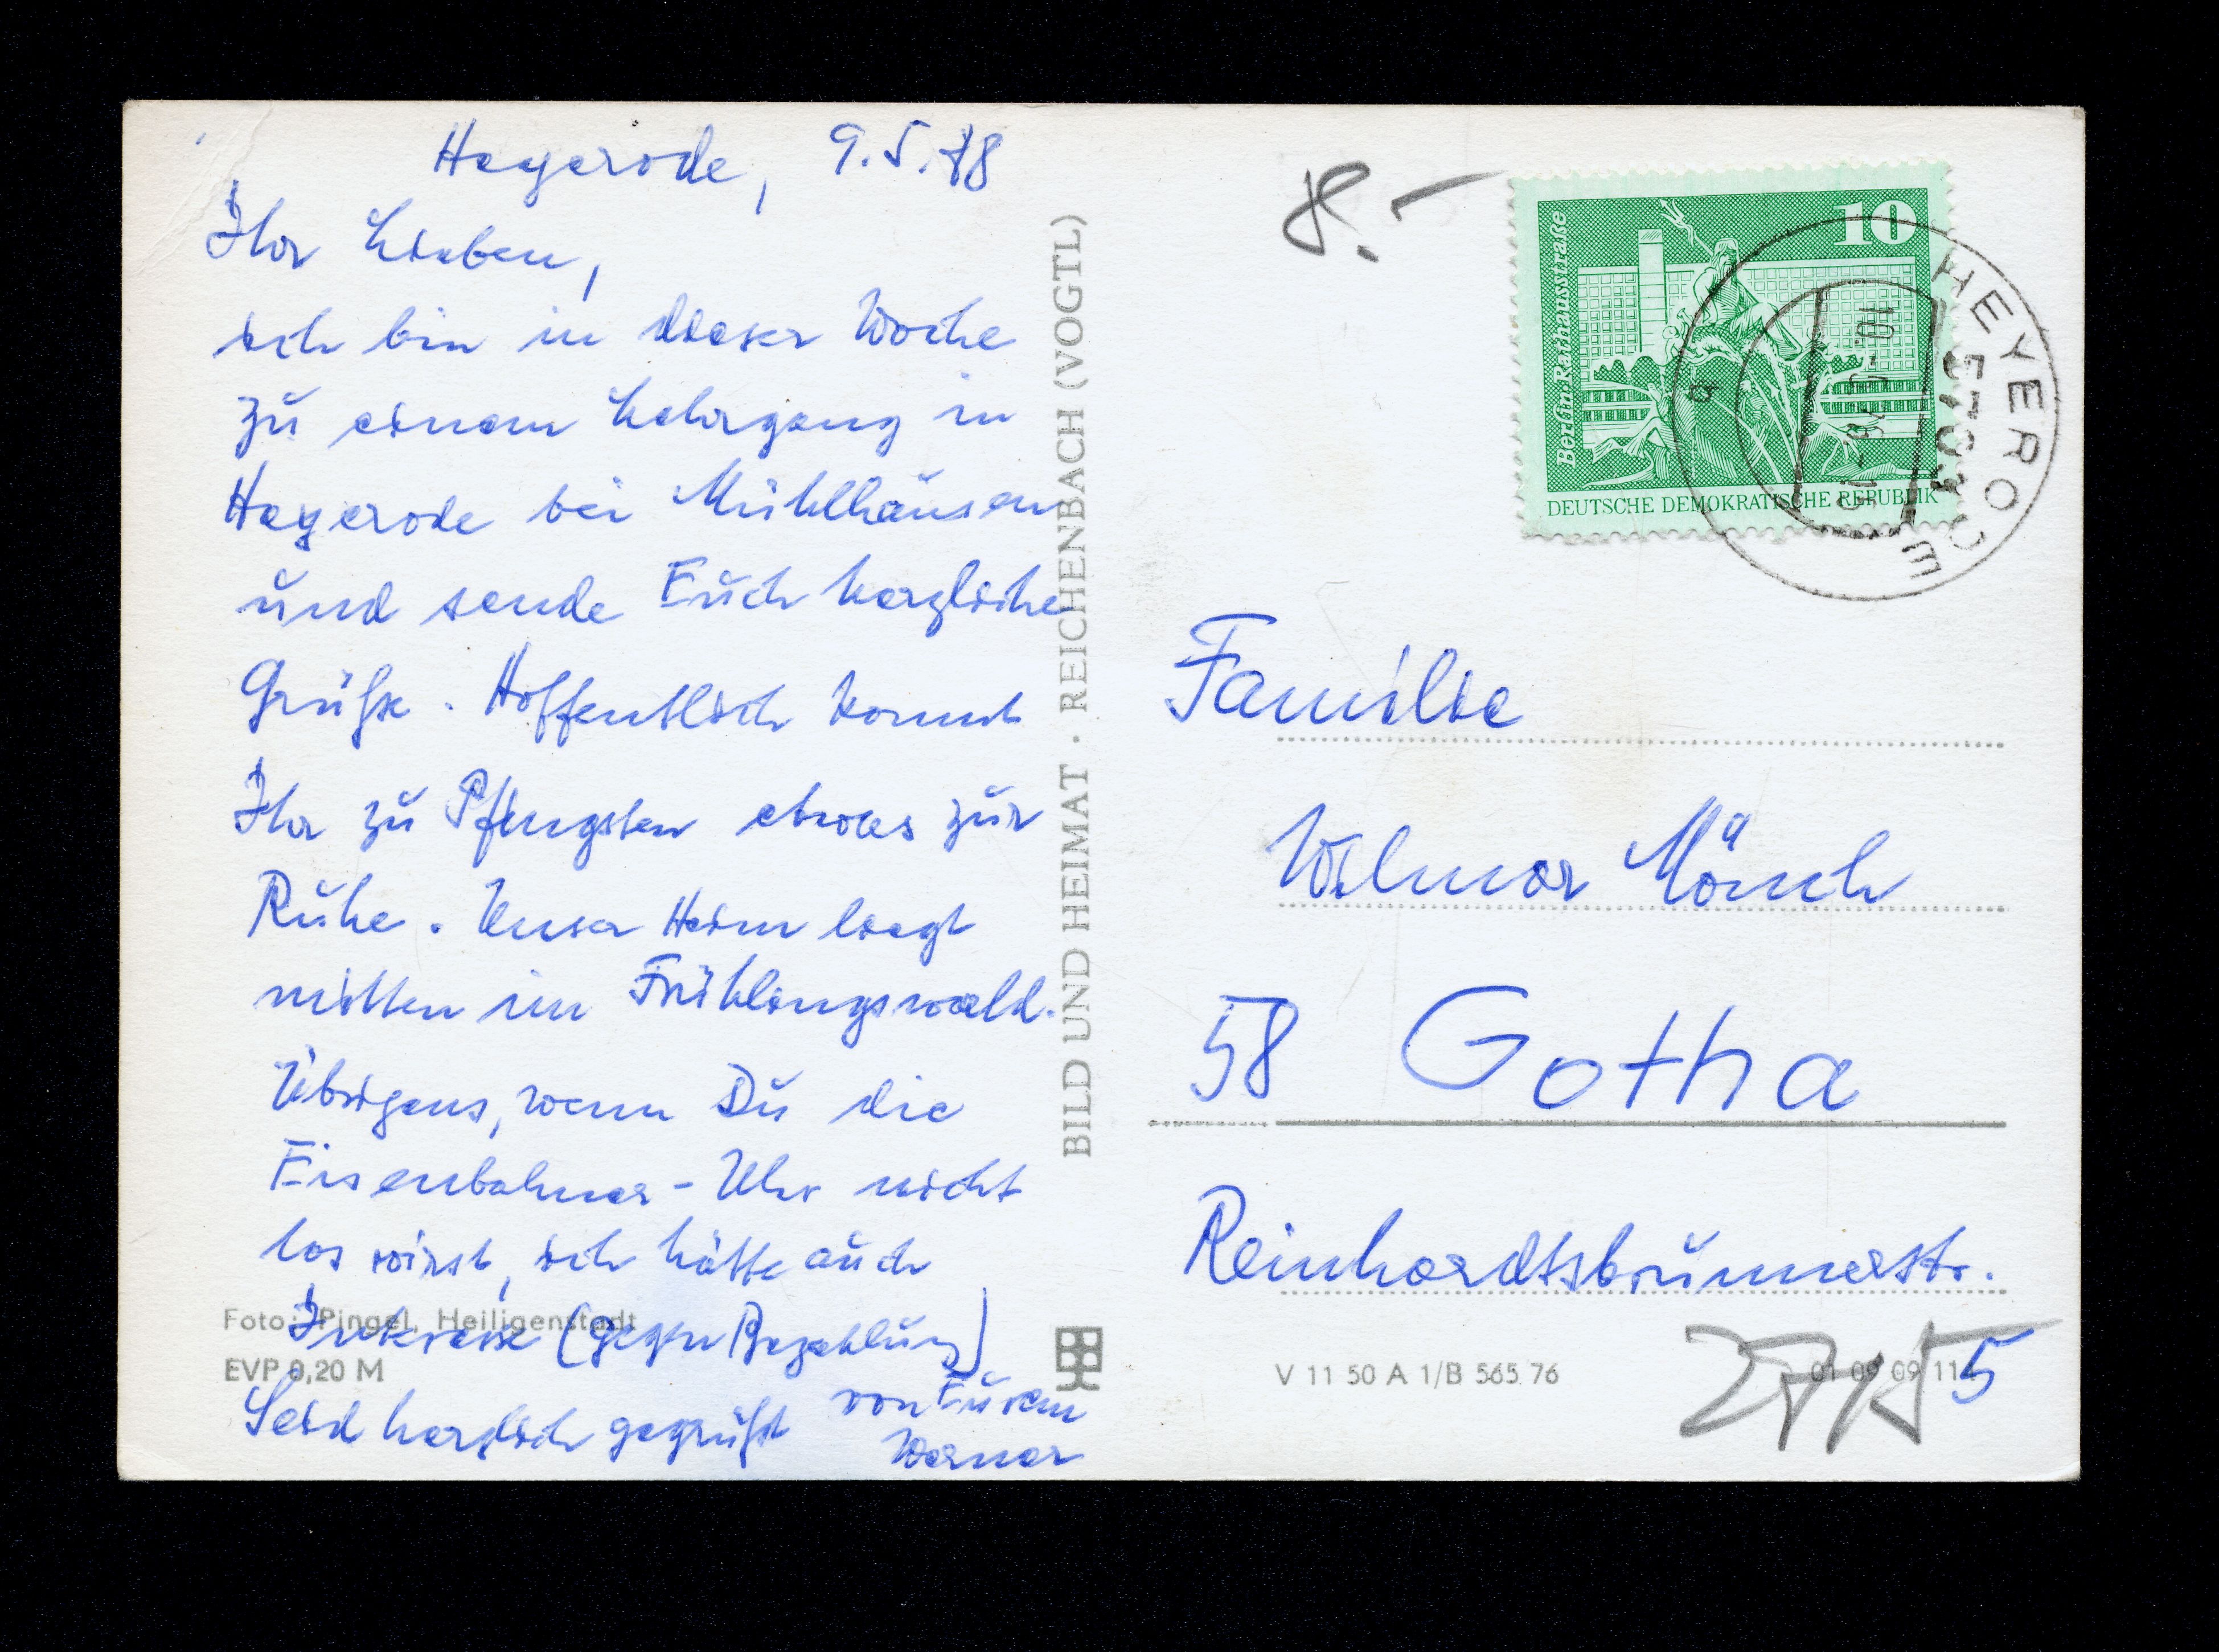 Heyerode, 9.5.78
Ihr Lieben,
ich bin in dieser Woche
zu einem Lehrgang in
Heyerode bei Mühlhausen
und sende Euch herzliche
Grüße. Hoffentlich kommt
Ihr zu Pfingsten etwas zur
Ruhe. Unser Heim liegt
mitten im Frühlingswald.
Übrigens, wenn Du die
Eisenbahner-Uhr nicht
los wirst, ich hätte auch
Interesse (gegen Bezahlung)
Seid herzlich gegrüßt von Eurem
Werner
Foto: Pingel, Heiligenstadt
EVP 0,20 M
BILD UND HEIMAT · REICHENBACH (VOGTL)
8.-
10
Berlin, Rathausstraße
DEUTSCHE DEMOKRATISCHE REPUBLIK
HEYERODE
5703
a
Familie
Wilmar Mönch
58 Gotha
Reinhardtsbrunnerstr.
5
V 11 50 A 1/B 565 76
01 09 09 11